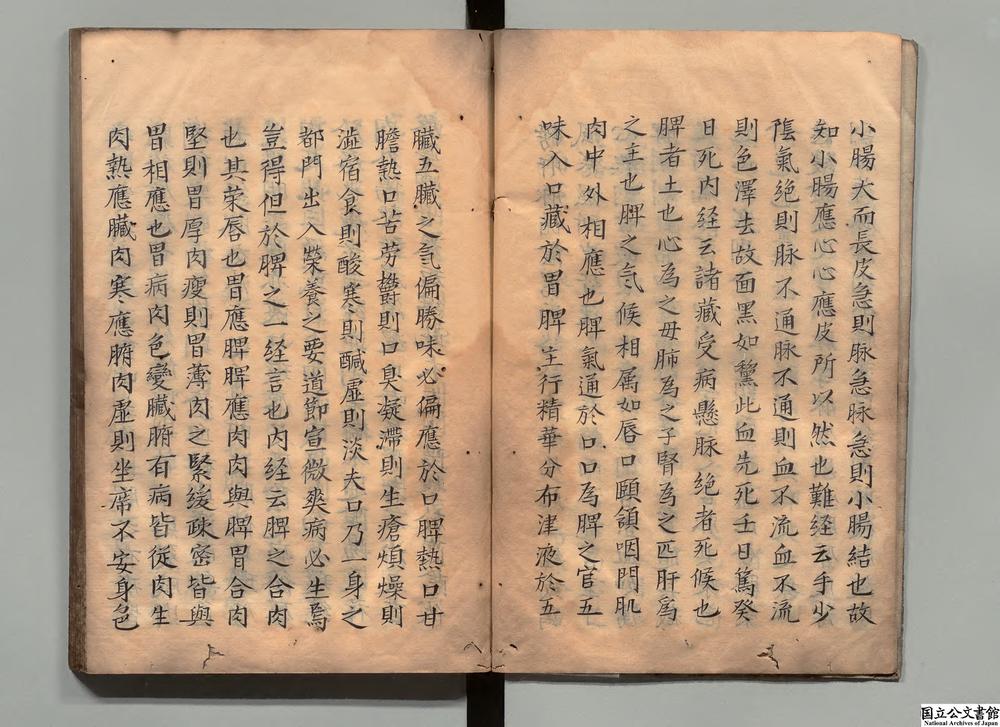 小腸大而長皮急則脉急脉急則小腸結也故
知小腸應心心應皮所以然也難経云手少
陰氣絶則脉不通脉不通則血不流血不流
則色澤去故面黑如黧此血先死壬日篤癸
日死内経云諸藏受病懸脉絶者死候也
脾者土也心為之母肺為之子腎為之匹肝為
之主也脾之氣候相属如唇口頤頷咽門肌
肉中外相應也脾氣通於口口為脾之官五
味入口藏於胃脾主行精華分布津液於五
臓五臓之氣偏勝味必偏應於口脾熱口甘
膽熱口苦労欝則口臭凝滯則生瘡煩燥則
澁宿食則酸寒則醎虚則淡夫口乃一身之
都門出入榮養之要道節宣微爽病必生焉
豈得但於脾之一経言也内経云脾之合肉
也其荣唇也胃應脾脾應肉肉與脾胃合肉
堅則胃厚肉瘦則胃薄肉之緊緩疎密皆與
胃相應也胃病肉色變臓腑有病皆従肉生
肉熱應臓肉寒應腑肉虚則坐席不安身色
国立公文書館
National Archives of Japan